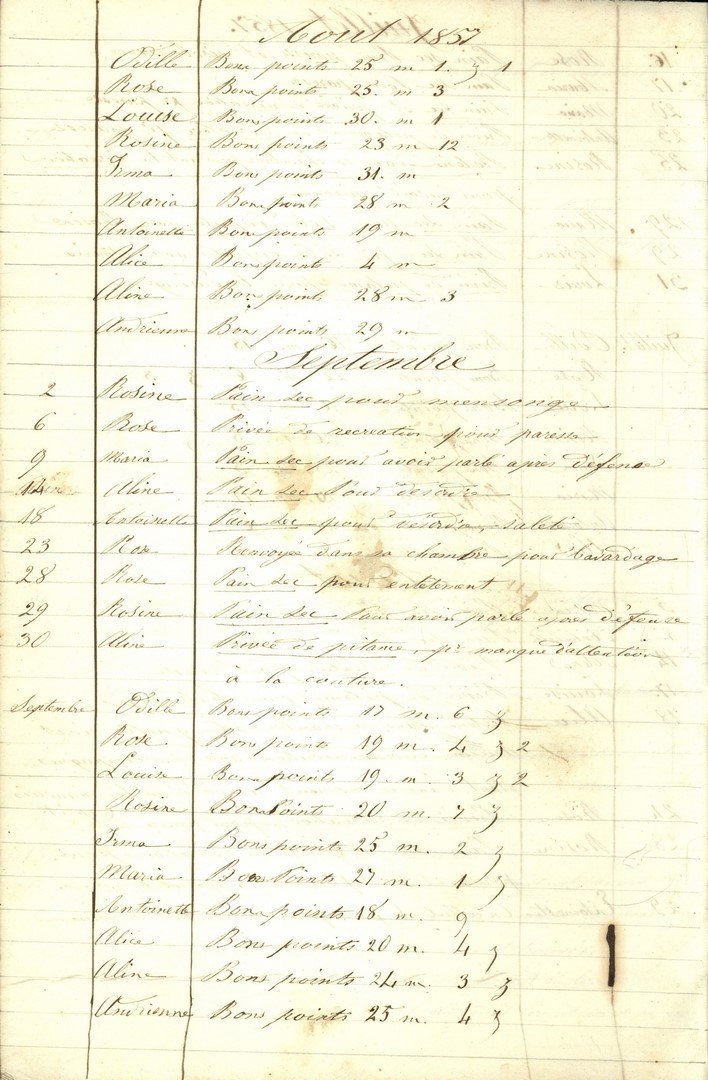 Aout 1857
Odille Bons points 25 m 1. z 1
Rose Bons points 25. m 3
Louise Bons points 30. m 1
Rosine Bons points 23 m 12
Irma Bons points 31. m
Maria Bons points 28 m 2
Antoinette Bons points 19 m
Alice Bons points 4 m
Aline Bons points 28 m 3
Andrienne Bons points 29 m
Septembre
2 Rosine Pain sec pour mensonge.
6 Rose Privée de recreation pour paresse
9 Maria Pain sec pour avoir parlé apres défense
14 Aline Pain sec Pour desordre
18 Antoinette Pain sec pour désordre, saleté
23 Rose Renvoyée dans sa chambre pour bavardage
28 Rose Pain sec pour entetement
29 Rosine Pain sec Pour avoir parlé apres défense
30 Aline Privée de pitance, pr manque d'attention
à la couture.
Septembre Odille Bons points 17 m. 6 z
Rose Bons points 19 m. 4 z 2
Louise Bons points 19. m. 3 z 2
Rosine Bons Points 20 m. 7 z
Irma Bons points 25 m. 2 z
Maria Bons Points 27 m. 1 z
Antoinette Bons points 18 m. 9
Alice Bons points 20 m. 4 z
Aline Bons points 24 m. 3 z
Andrienne Bons points 25 m. 4 z